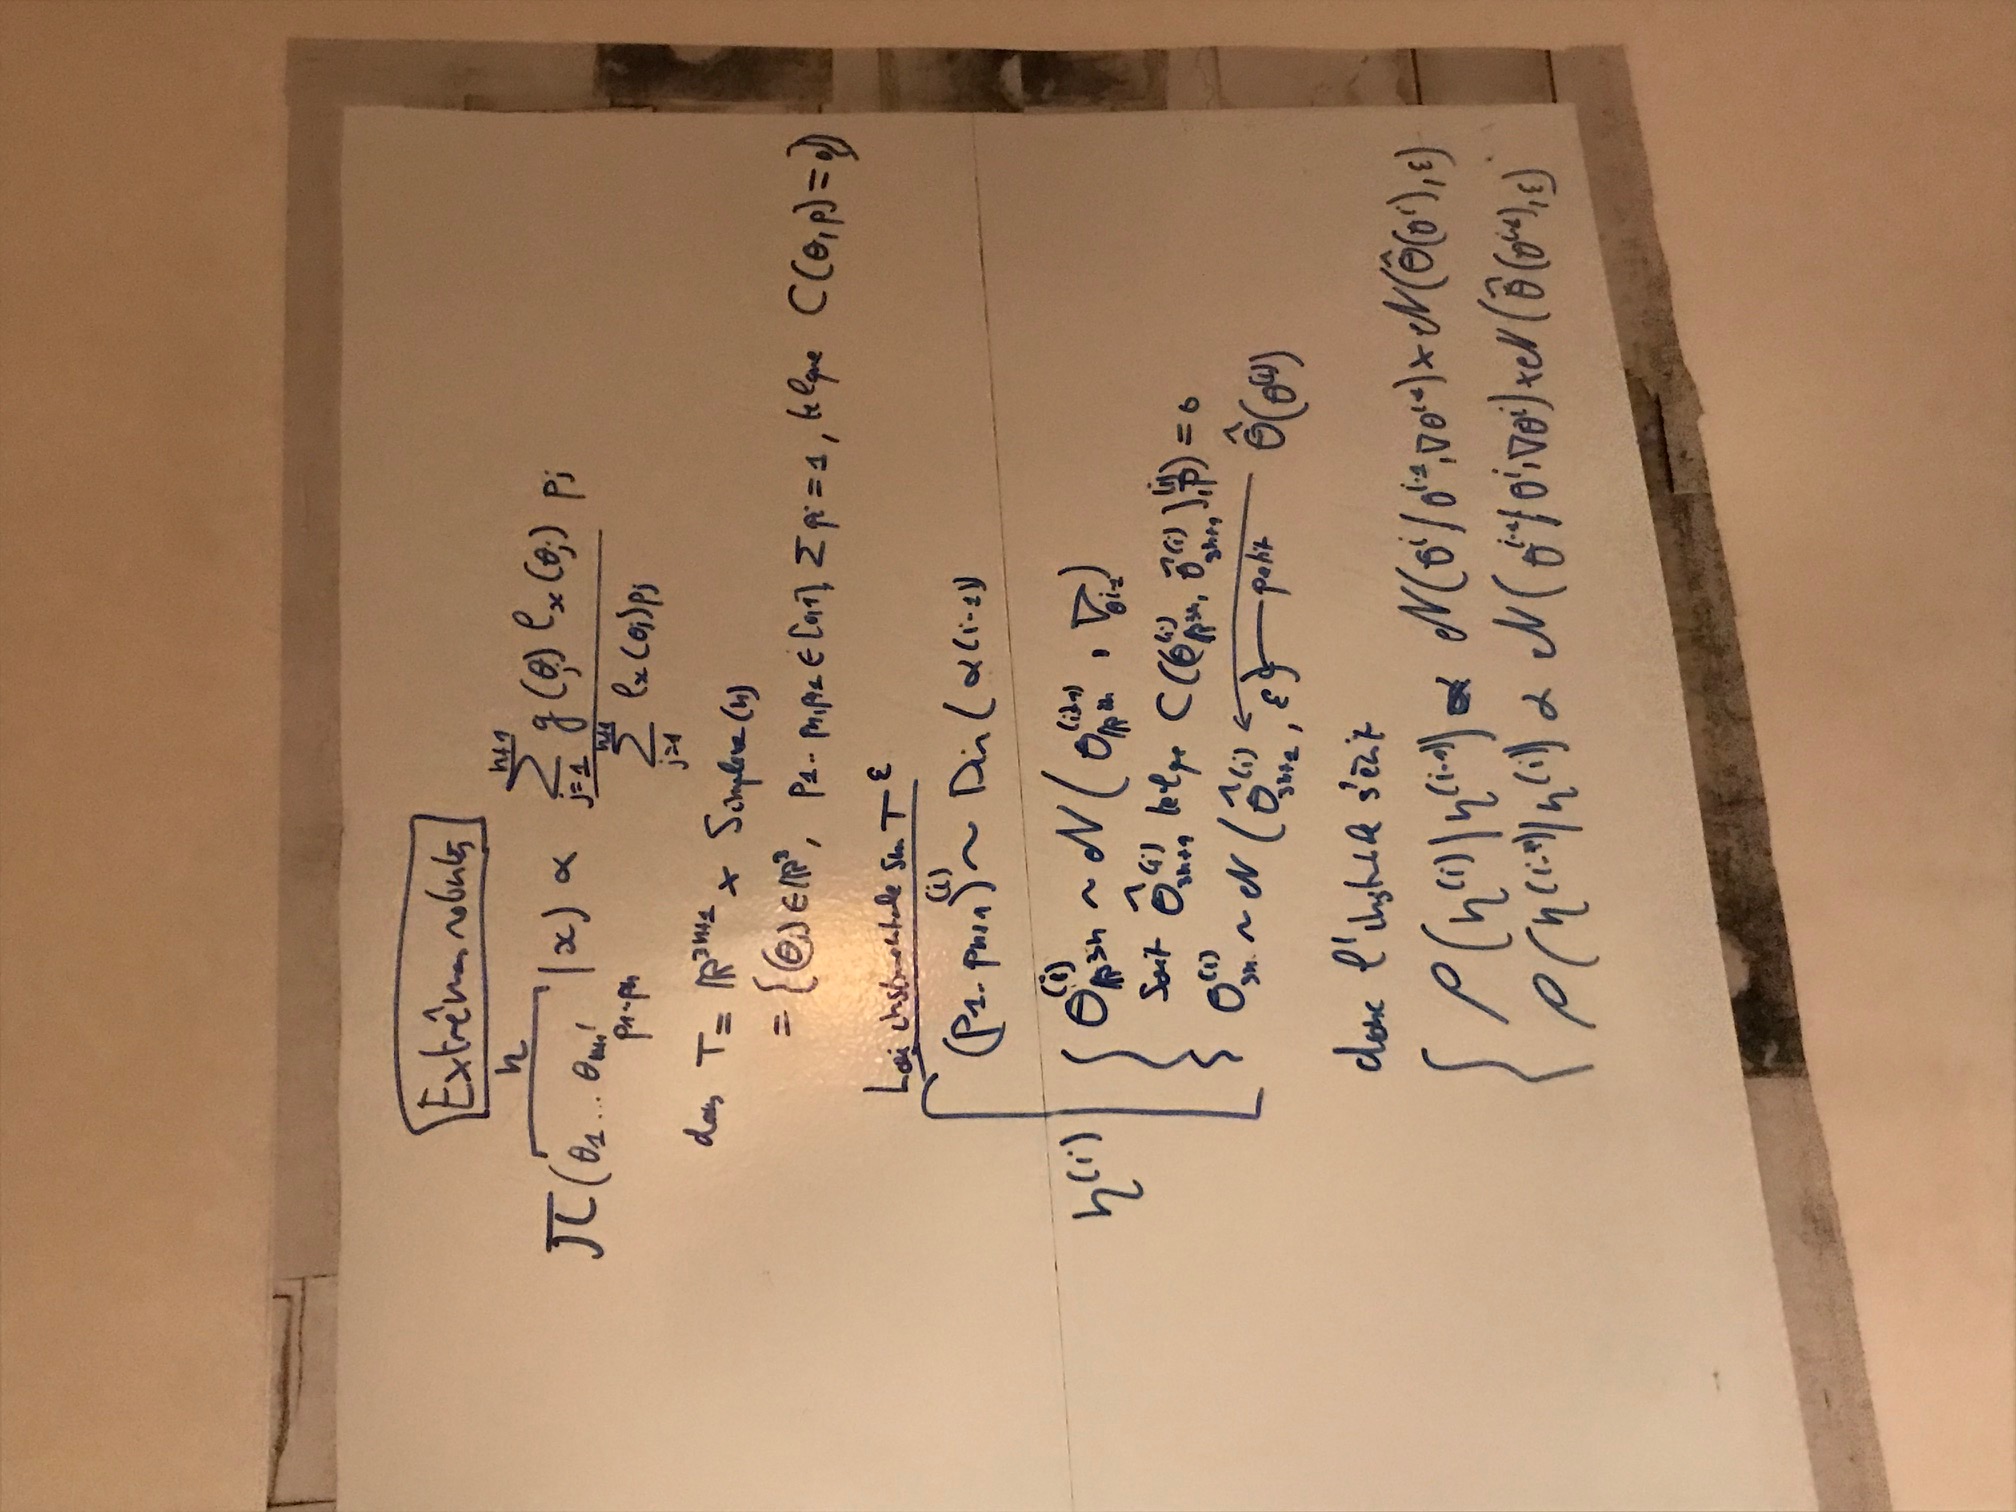 Extrêmes robustes
η
π(θ1 ... θn+1, p1..pn | x) ∝ Σ_{j=1}^{n+1} g(θj) ℓx(θj) pj / Σ_{j=1}^{n+1} ℓx(θj) pj
dans T = ℝ^{3n+1} × Simplexe(n)
= {(θi) ∈ ℝ³, p1.. pn, pn+1 ∈ [0,1], Σ pi = 1, tel que C(θ, p) = 0}
Loi instrumentale sur T^ε
(p1.. pn+1)^(i) ~ Dir(α(i-1))
η^(i)
θ^(i)_{ℝ^{3n}} ~ N(θ^(i-1)_{ℝ^{3n}}, ∇_{θ^{i-1}})
Soit θ̂^(i)_{3n+1} tel que C((θ^(i)_{ℝ^{3n}}, θ̂^(i)_{3n+1}), p^(i)) = 0
θ^(i)_{3n} ~ N(θ̂^(i)_{3n+1}, ε) petit θ̂(θ^(i))
donc l' s'écrit
ρ(η^(i) | η^(i-1)) ∝ N(θ^i / θ^{i-1}, ∇θ^{i-1}) × N(θ̂(θ^i), ε)
ρ(η^(i-1) | η^(i)) ∝ N(θ^{i-1} / θ^i, ∇θ^i) × N(θ̂(θ^{i-1}), ε)